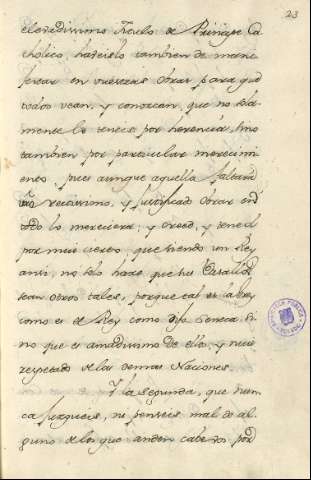 23
elevadissimo titulo de Principe Ca
tholico, haveislo tambien de mani
festar en vuestras obras, para que
todos vean, y conozcan, que no sola
mente lo teneis por herencia, sino
tambien por particular mereci
ento, pues aunque aquella faltara
rectissimo, y justificado obrar en
todo lo mereciera, y creed, y tened
por muy cierto, que siendo un Rey
assi, no solo hace que sus Vasallos
sean otros tales, porque tal es la ley
como es el Rey como dijo Seneca, Si
no que es amadissimo de ellos, y muy
respetado de las demas Naciones.
Y la segunda, que nun
ca juzgueis, ni penseis mal de al
guno de los que anden cabe vos, por
BIBLIOTECA PUBLICA
TOLEDO